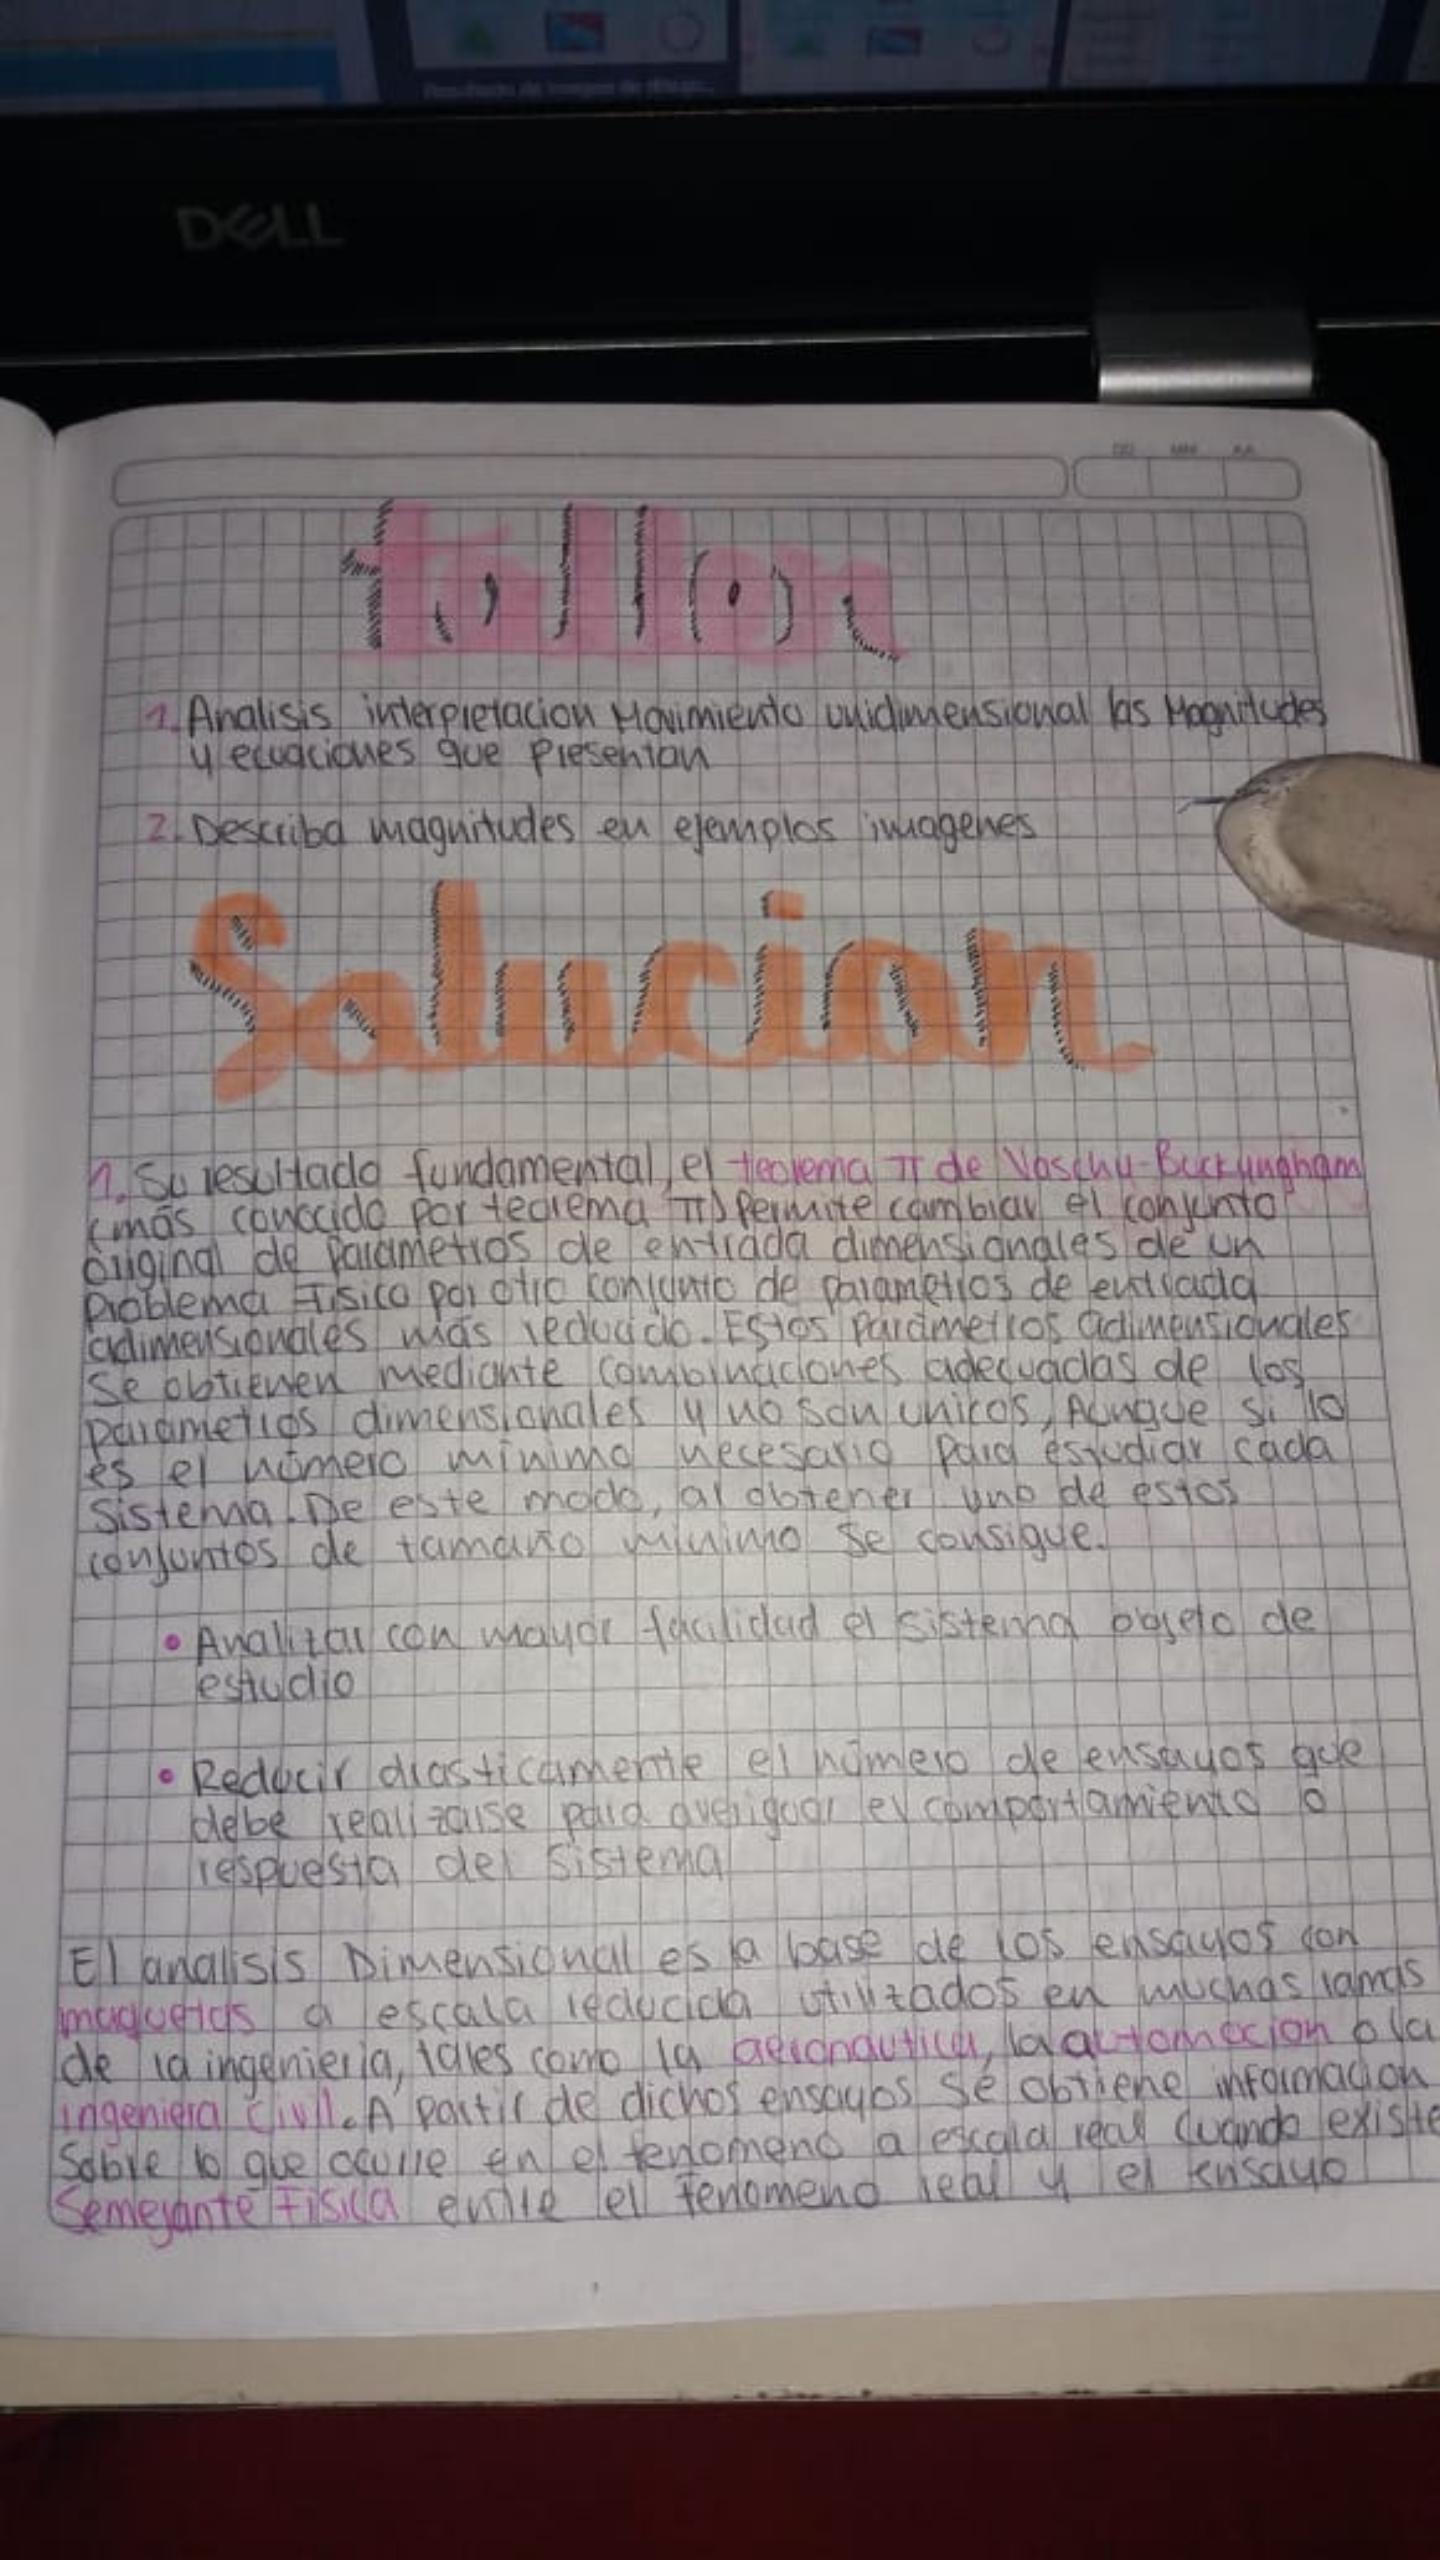 DELL
DD MM AA
tallon
1. Analisis interpretacion Movimiento unidimensional las Magnitudes
y ecuaciones que presentan
2. Describa magnitudes en ejemplos imagenes
Solucion
1. Su resultado fundamental, el teorema π de Vaschy-Buckyngham
(más conocido por teorema π) Permite cambiar el conjunto
original de Parametros de entrada dimensionales de un
Problema Fisico por otro conjunto de parametros de entrada
adimensionales más reducido. Estos Parámetros adimensionales
se obtienen mediante combinaciones adecuadas de los
parametros dimensionales y no son unicos, Aunque si lo
es el número mínimo necesario para estudiar cada
Sistema. De este modo, al obtener uno de estos
conjuntos de tamaño mínimo se consigue.
• Analizar con mayor facilidad el sistema objeto de
estudio
• Reducir drasticamente el número de ensayos que
debe realizarse para averiguar el comportamiento o
respuesta del sistema
El analisis Dimensional es la base de los ensayos con
maquetas a escala reducida utilizados en muchas ramas
de la ingenieria, tales como la aeronautica, la automocion o la
ingeniera Civil. A partir de dichos ensayos se obtiene informacion
Sobre lo que ocurre en el fenomeno a escala real cuando existe
Semejante Fisica entre el fenomeno real y el ensayo